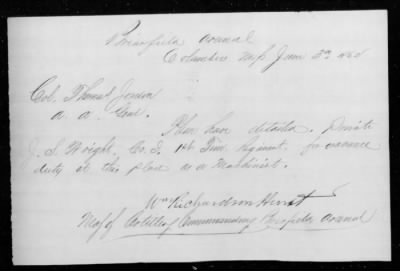 Briarfield Arsenal
Columbus Miss June 3rd 1862
Col. Thomas Jordan
A. A. Genl.
Please have detailed. Private
J. S. Wright, Co. I. 1st Tenn. Regiment. for ordnance
duty at this place as a Machinist.
Wm Richardson Hunt
Maj of Artillery Commanding Briarfield Arsenal